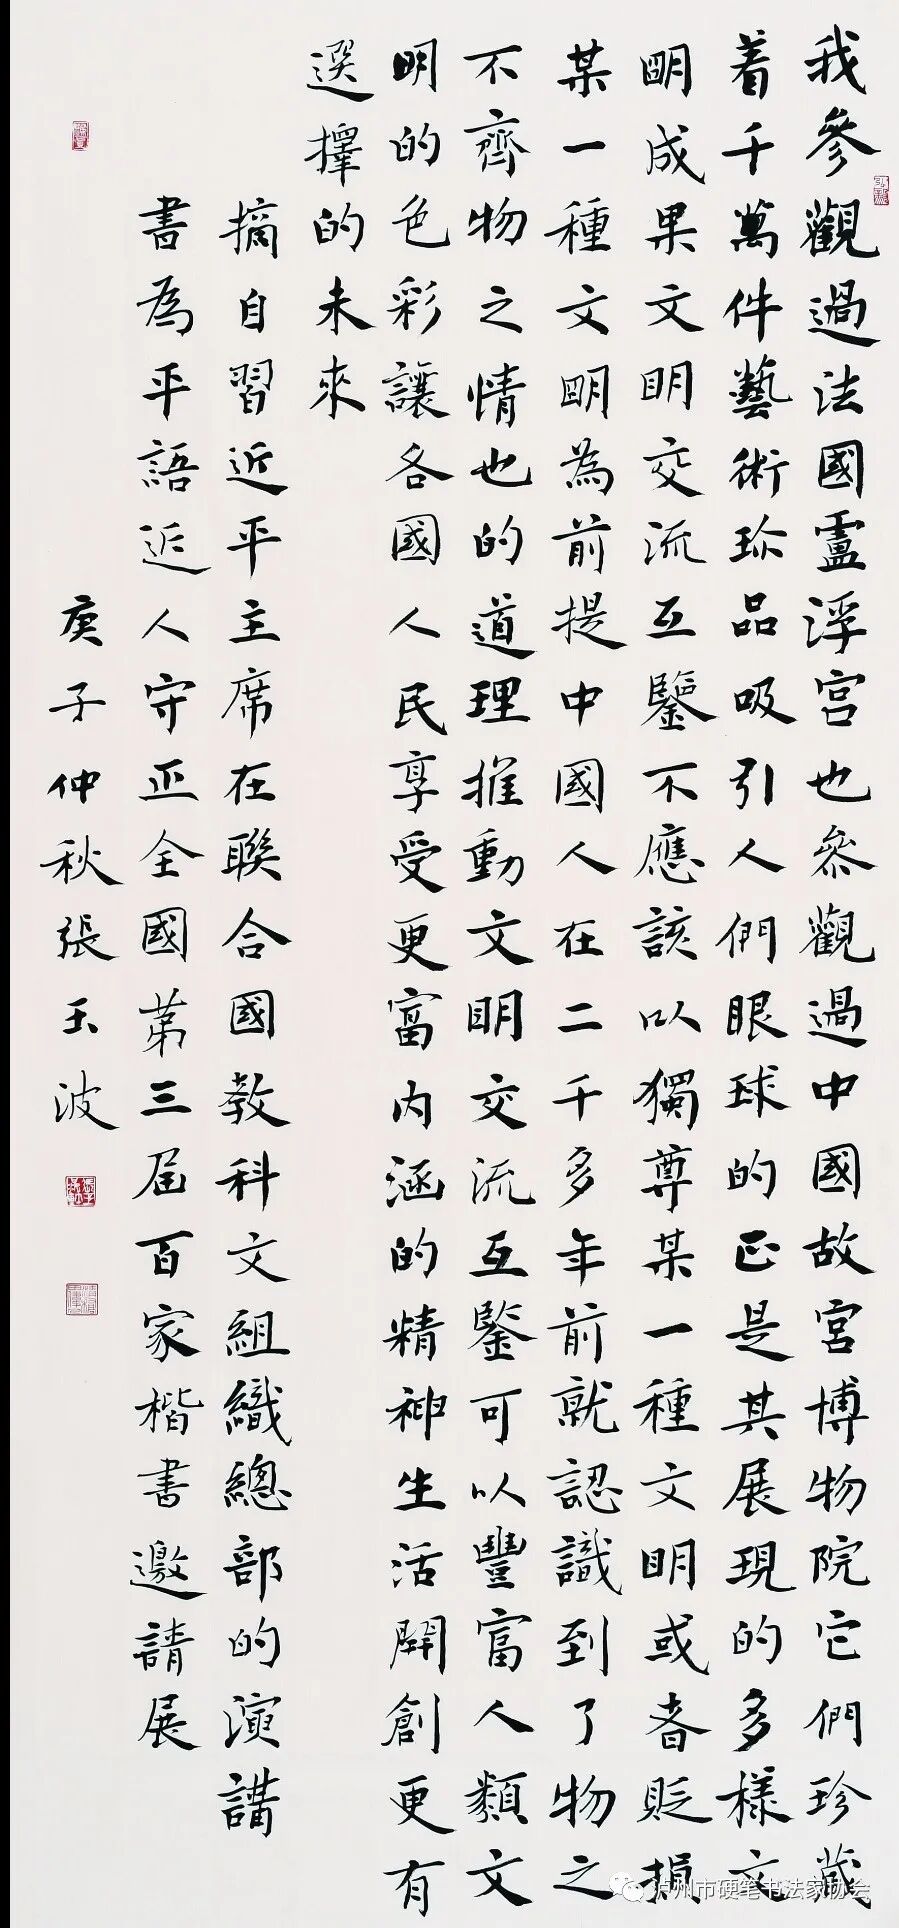 我參觀過法國盧浮宮也參觀過中國故宮博物院它們珍藏
着千萬件藝術珎品吸引人們眼球的正是其展現的多樣文
朙成果文明交流互鑒不應該以獨尊某一種文明或者貶損
某一種文朙為前提中國人在二千多年前就認識到了物之
不齊物之情也的道理推動文明交流互鑒可以豐富人類文
明的色彩讓各國人民享受更富内涵的精神生活開創更有
選擇的未來
摘自習近平主席在聯合國教科文組織總部的演講
書為平語近人守正全國第三屆百家楷書邀請展
庚子仲秋張玉波
泸州市硬笔书法家协会